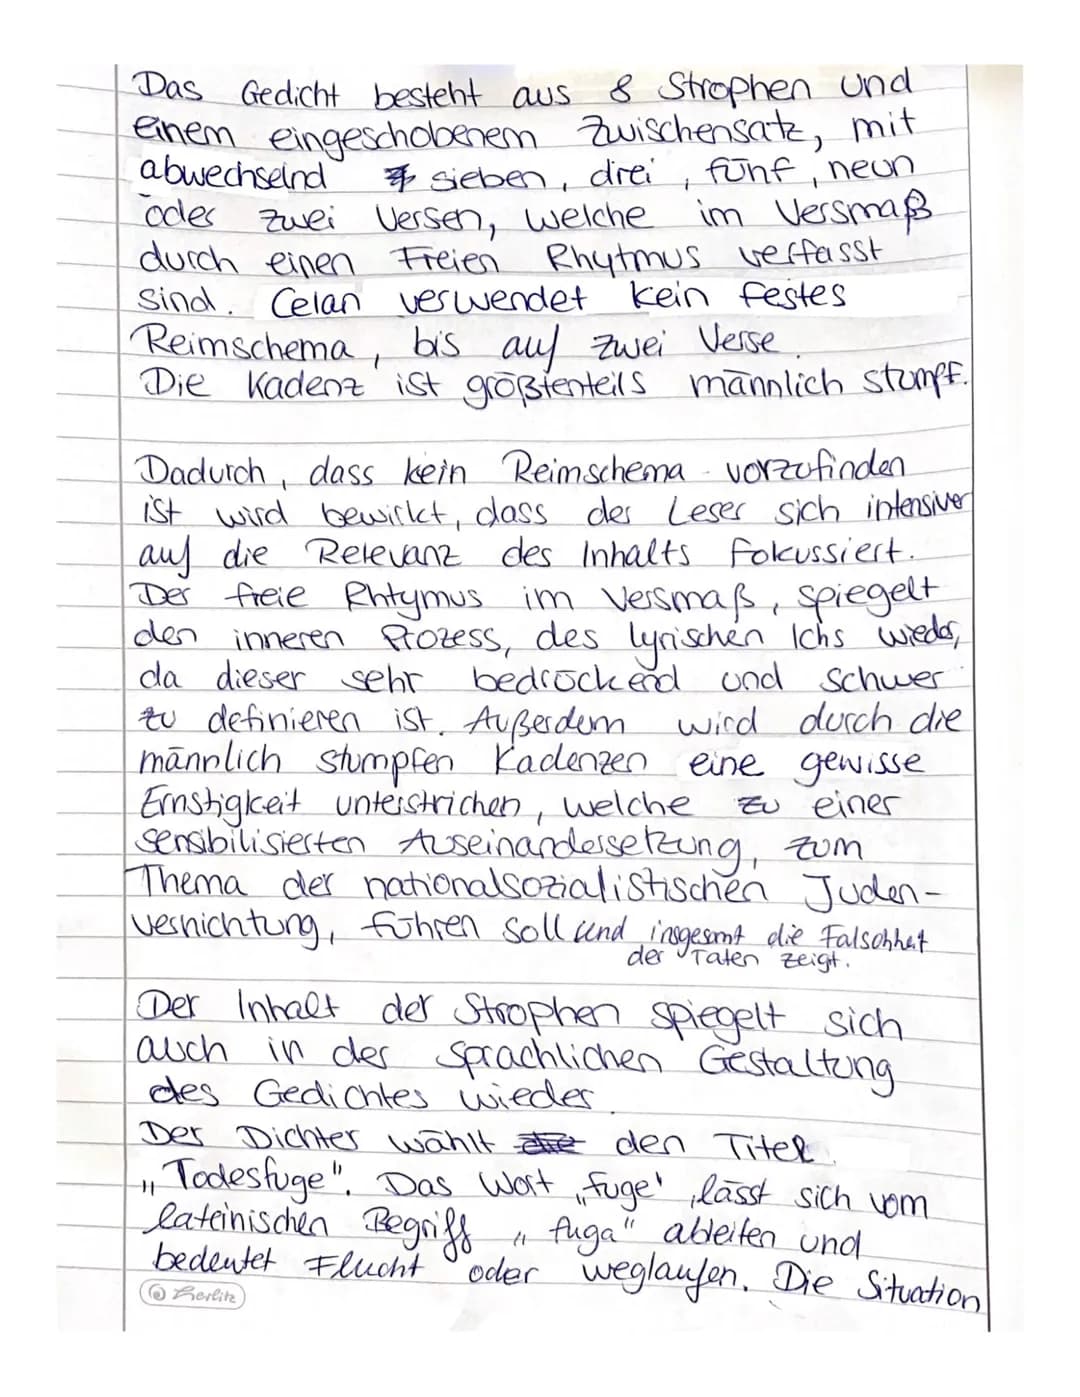 Das Gedicht besteht aus 8 Strophen und
einem eingeschobenem Zwischensatz, mit
abwechselnd sieben, drei, fünf, neun
oder zwei Versen, welche im Versmaß
durch einen Freien Rhytmus verfasst
sind. Celan verwendet kein festes
Reimschema, bis auf zwei Verse.
Die Kadenz ist größtenteils männlich stumpf.
Dadurch, dass kein Reimschema vorzufinden
ist wird bewirkt, dass der Leser sich intensiver
auf die Relevanz des Inhalts fokussiert.
Der freie Rhtymus im Versmaß, spiegelt
den inneren Prozess, des lyrischen Ichs wieder,
da dieser sehr bedrückend und schwer
zu definieren ist. Außerdem wird durch die
männlich stumpfen Kadenzen eine gewisse
Ernstigkeit unterstrichen, welche zu einer
sensibilisierten Auseinandersetzung, zum
Thema der nationalsozialistischen Juden-
vernichtung, führen soll und insgesamt die Falschheit
der Taten zeigt.
Der Inhalt der Strophen spiegelt sich
auch in der sprachlichen Gestaltung
des Gedichtes wieder.
Der Dichter wählt den Titel
„Todesfuge". Das Wort „fuge", lässt sich vom
lateinischen Begriff „fuga" ableiten und
bedeutet Flucht oder weglaufen. Die Situation
herlitz